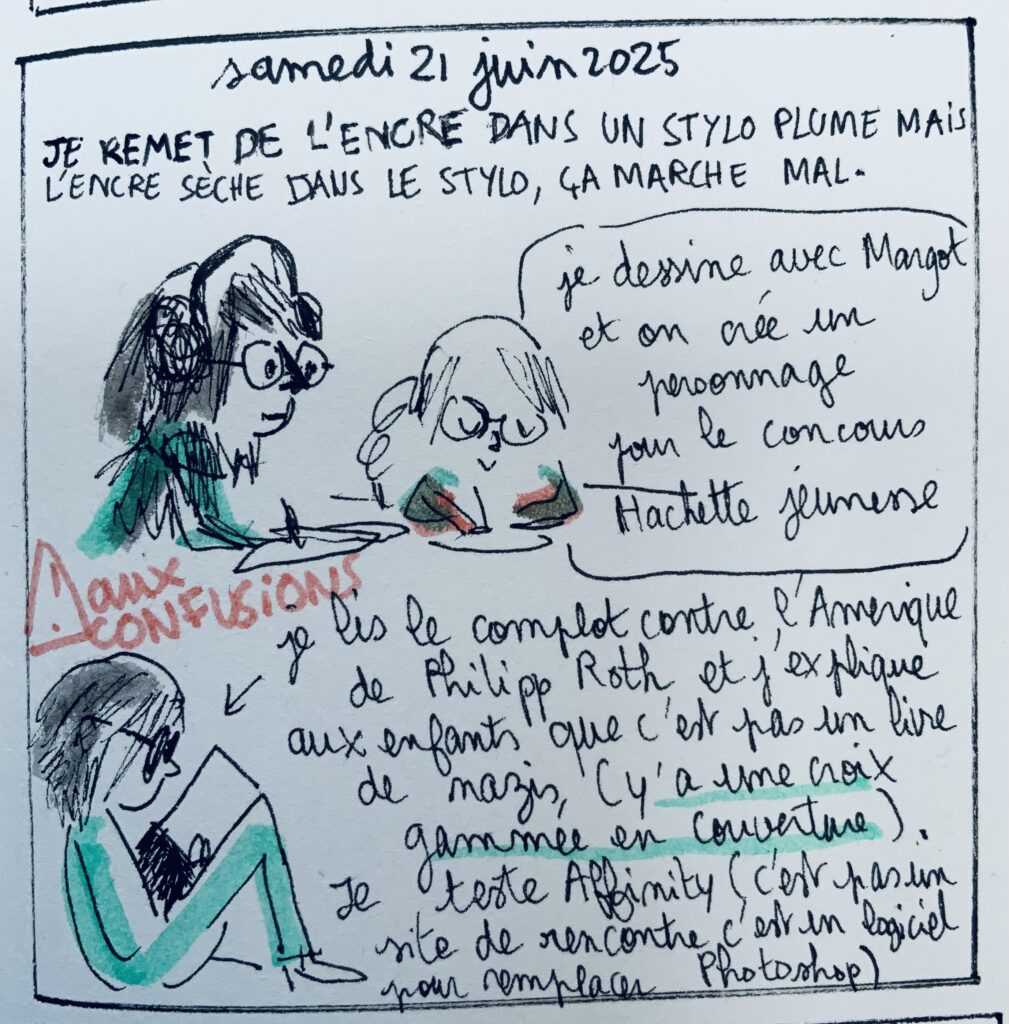 samedi 21 juin 2025
JE REMET DE L'ENCRE DANS UN STYLO PLUME MAIS
L'ENCRE SÈCHE DANS LE STYLO, ÇA MARCHE MAL.
je dessine avec Margot
et on crée un
personnage
pour le concours
Hachette jeunesse
! aux
CONFUSIONS
je lis le complot contre l'Amerique
de Philipp Roth et j'explique
aux enfants que c'est pas un livre
de nazis, (y'a une croix
gammée en couverture).
Je teste Affinity (c'est pas un
site de rencontre c'est un logiciel
pour remplacer Photoshop)